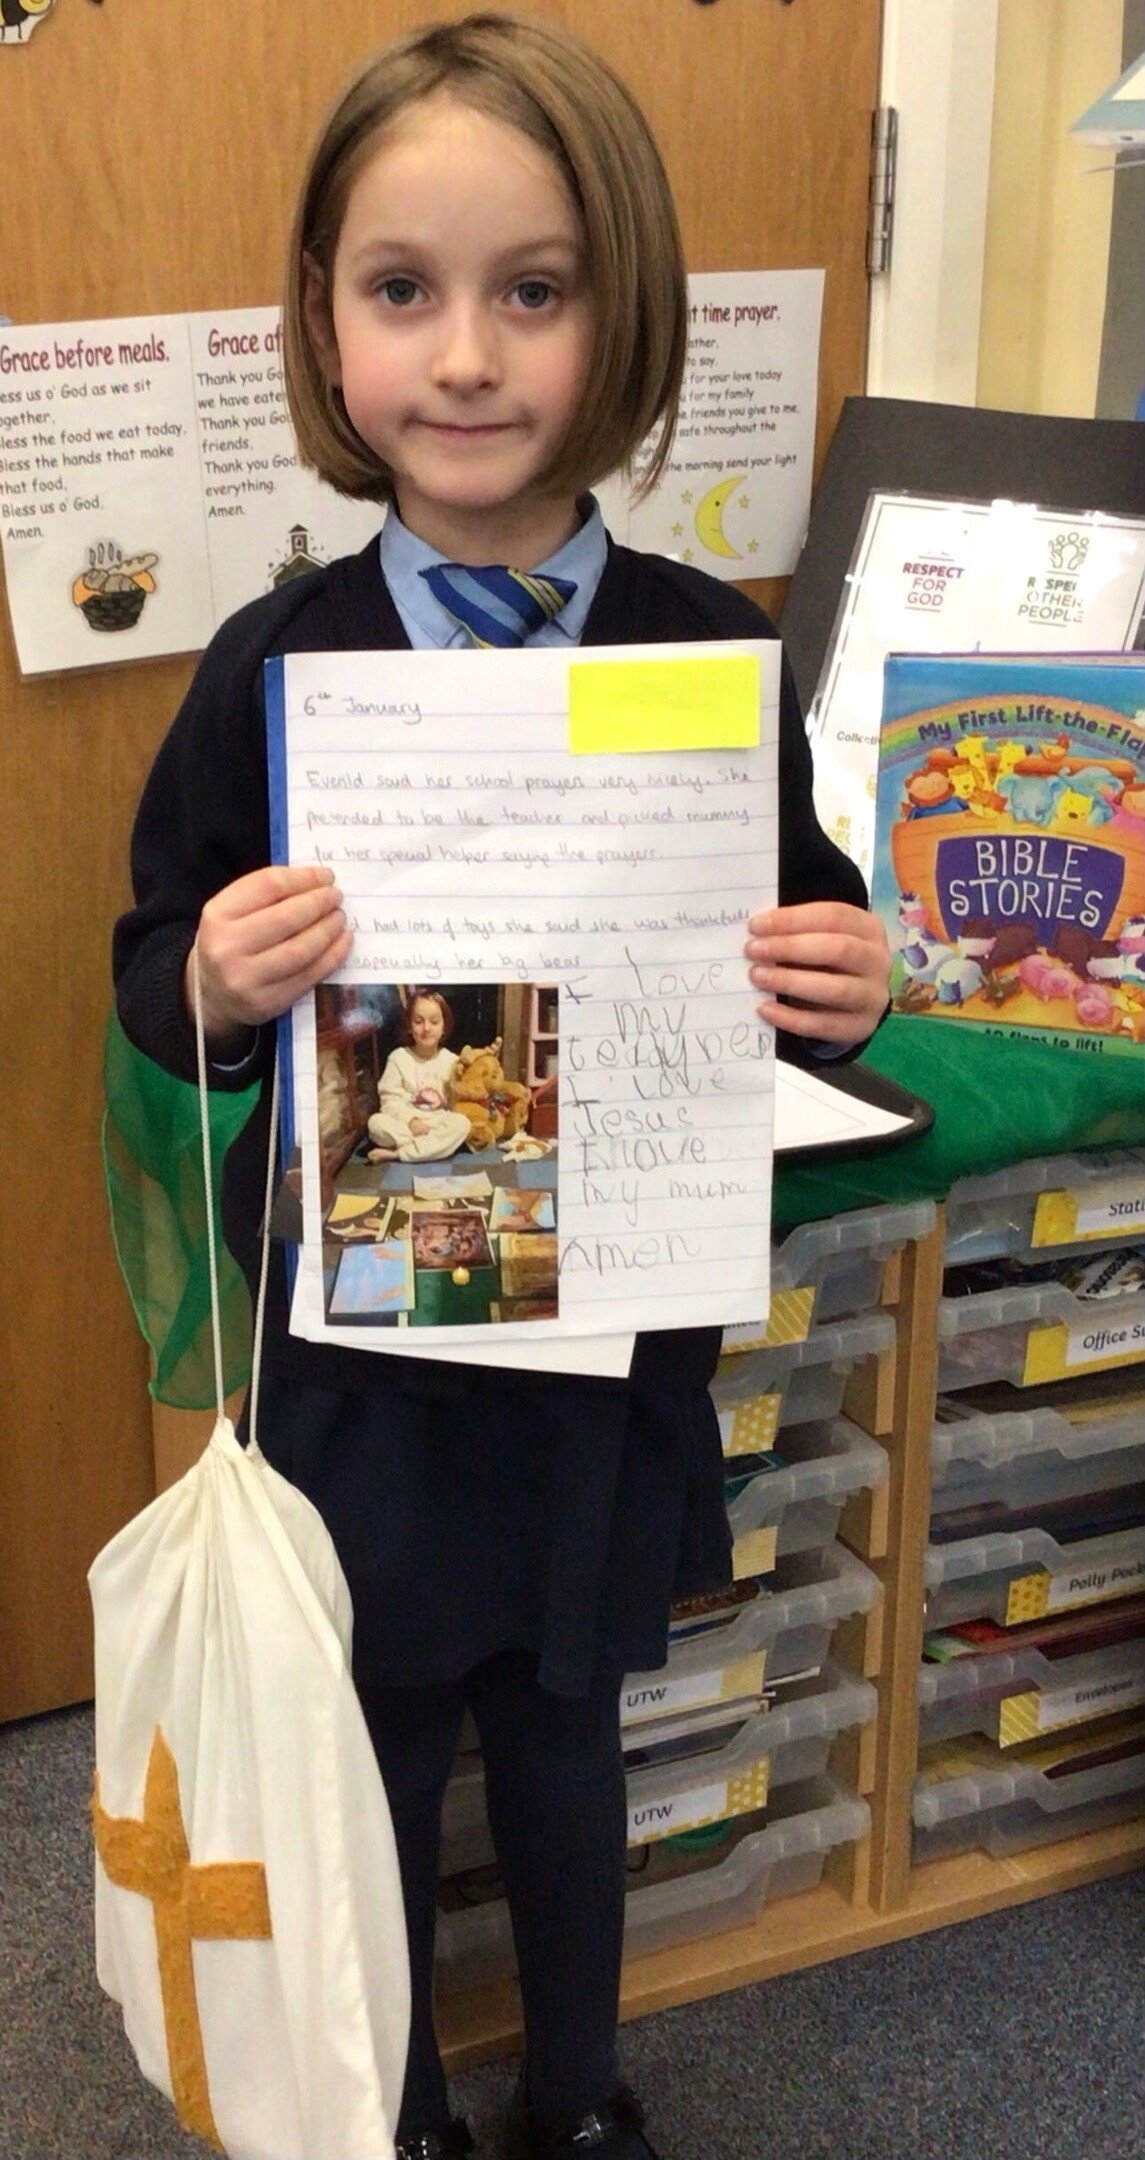 Grace before meals.
ess us o' God as we sit
ogether,
less the food we eat today,
Bless the hands that make
that food,
Bless us o' God,
Amen.
Grace af
Thank you Go
we have eate
Thank you God
friends,
Thank you God
everything.
Amen.
t time prayer.
ather,
to say,
for your love today
for my family
e friends you give to me,
safe throughout the
the morning send your light
RESPECT
FOR
GOD
OTHER
PEOPLE
My First Lift-the-Flap
BIBLE
STORIES
6th January
Evenld said her school prayers very nicely. She
pretended to be the teacher and picked mummy
for her special helper saying the prayers.
had lots of toys she said she was thankfull
especially her big bear
I love
my
I love
Jesus
I love
my mum
Amen
Stati
Office Su
Polly Pock
Envelopes
UTW
UTW